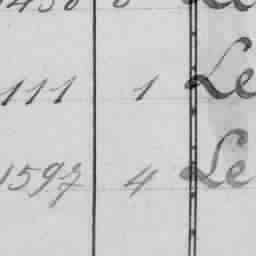 111 1 Le
1597 4 Le